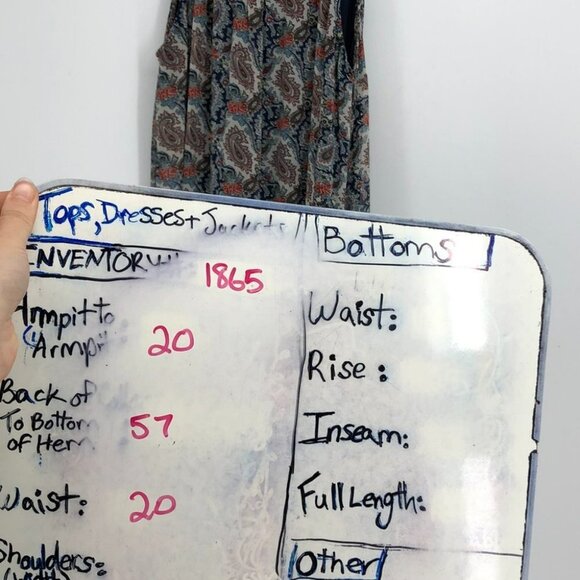 Tops, Dresses + Jackets
INVENTORY
1865
Armpit to
Armpit
20
Back of
To Bottom
of Hem
57
Waist:
20
Shoulders:
Bottoms
Waist:
Rise:
Inseam:
Full Length:
Other